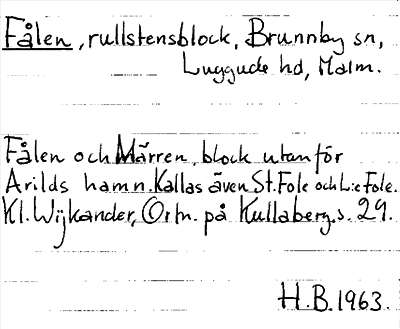 Fålen, rullstensblock, Brunnby sn,
Luggude hd, Malm.
Fålen och Märren, block utanför
Arilds hamn. Kallas även St. Fole och L:e Fole.
Kl. Wijkander, Ortn. på Kullaberg, s. 29.
H.B. 1963.